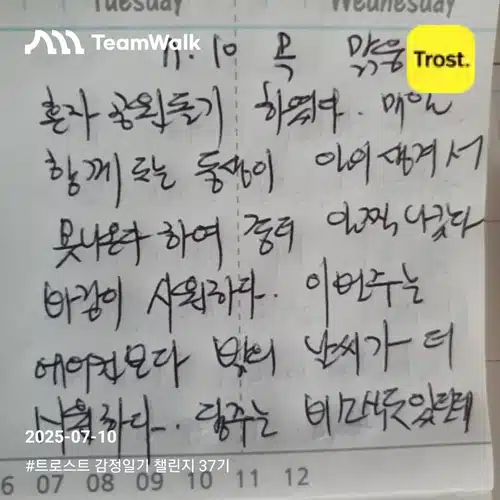 Tuesday
Wednesday
TeamWalk
Trost.
7.10 목 맑음
혼자 공원돌기 하였다. 매일
함께 도는 동생이 일이 생겨서
못나온다 하여 좀더 일찍 나갔다
바람이 시원하다. 이번주는
에어컨보다 밖의 날씨가 더
시원하다. 담주는
2025-07-10
#트로스트 감정일기 챌린지 37기
6 07 08 09 10 11 12